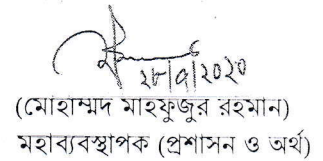 ২৮/৭/২০২০
(মোহাম্মদ মাহফুজুর রহমান)
মহাব্যবস্থাপক (প্রশাসন ও অর্থ)